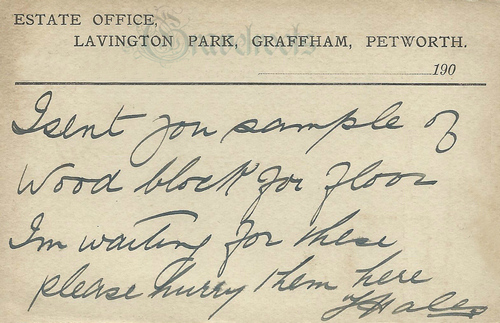 ESTATE OFFICE,
LAVINGTON PARK, GRAFFHAM, PETWORTH.
190
I sent you sample of
Wood block for floor
Im waiting for these
please hurry them here
Hales